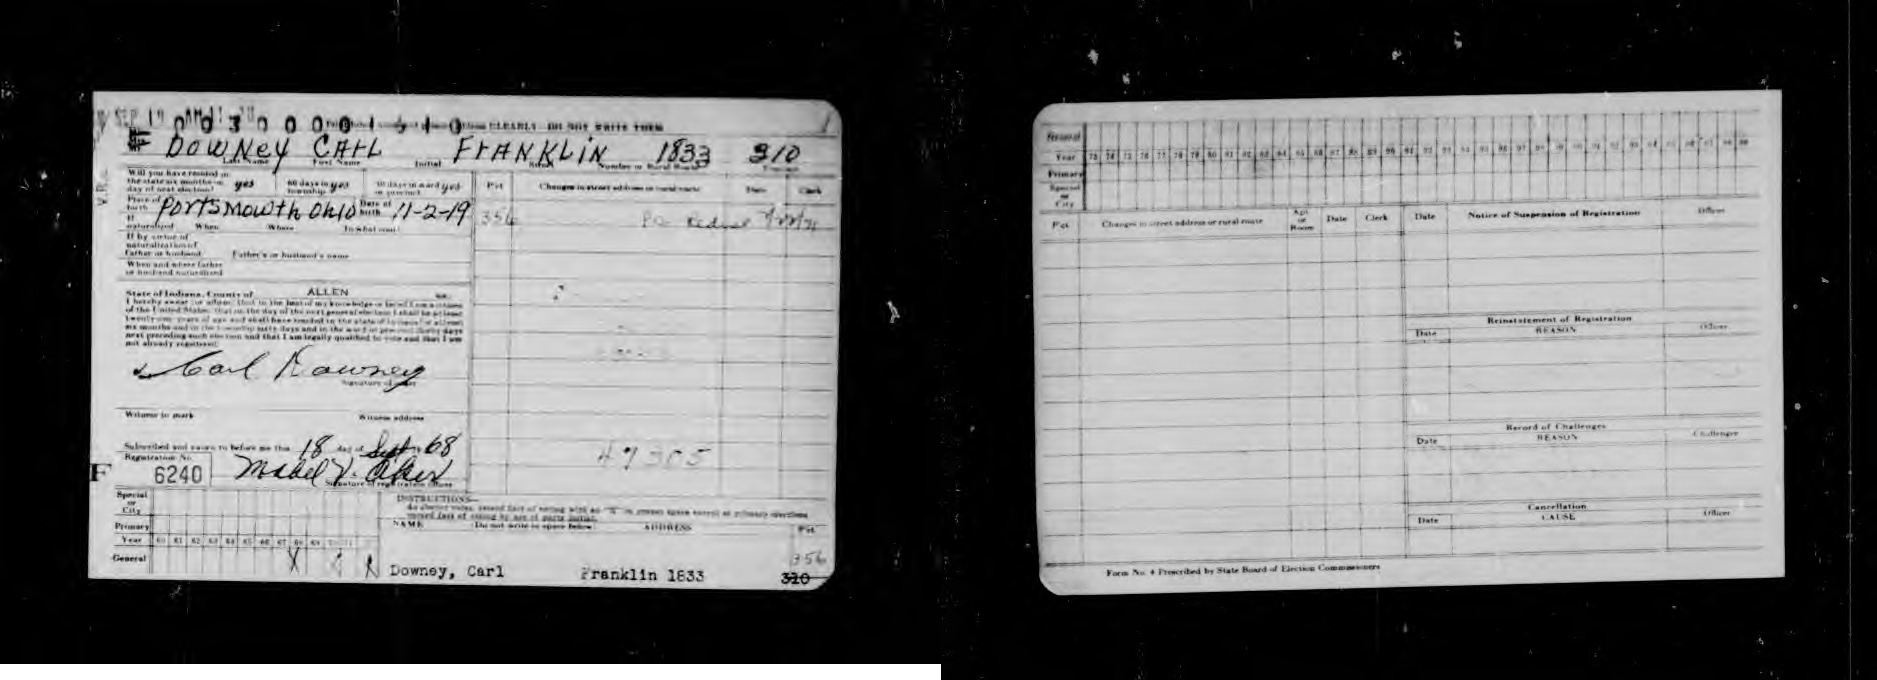 CLEARLY. DO NOT WRITE THEM
Downey Carl Franklin 1833 310
Last Name First Name Initial Number or Rural Route
Will you have resided in
the state six months on
day of next election? yes 60 days in township yes 30 days in ward or precinct yes
Pct. Changes in street address or rural route Date Clerk
Place of birth Portsmouth Ohio Date of birth 11-2-19
354 7/22/71
If naturalized When Where In what court
If by virtue of
naturalization of
father or husband Father's or husband's name
When and where father
or husband naturalized
State of Indiana, County of ALLEN ss:
I hereby swear or affirm that to the best of my knowledge or belief I am a citizen
of the United States, that on the day of the next general election I shall be at least
twenty-one years of age and shall have resided in the state of Indiana at least
six months and in the township sixty days and in the ward or precinct thirty days
next preceding such election and that I am legally qualified to vote and that I am
not already registered.
Carl Downey
Signature of voter
Witness to mark Witness address
Subscribed and sworn to before me this 18 day of Sept 68
47305
Registration No.
F 6240 Mabel V. Aker
Signature of registration officer
Special
or
City
INSTRUCTIONS
Primary
NAME Do not write in space below ADDRESS Pct.
Year 60 61 62 63 64 65 66 67 68 69
General X
354
Downey, Carl Franklin 1833 310
General
Year 73 74 75 76 77 78 79 80 81 82 83 84 85 86 87 88 89 90 91 92 93 94 95 96 97 98 99
Primary
Special
or
City
Pct. Changes in street address or rural route Apt. or Room Date Clerk Date Notice of Suspension of Registration Officer
Reinstatement of Registration
Date REASON Officer
Record of Challenges
Date REASON Challenger
Cancellation
Date CAUSE Officer
Form No. 4 Prescribed by State Board of Election Commissioners